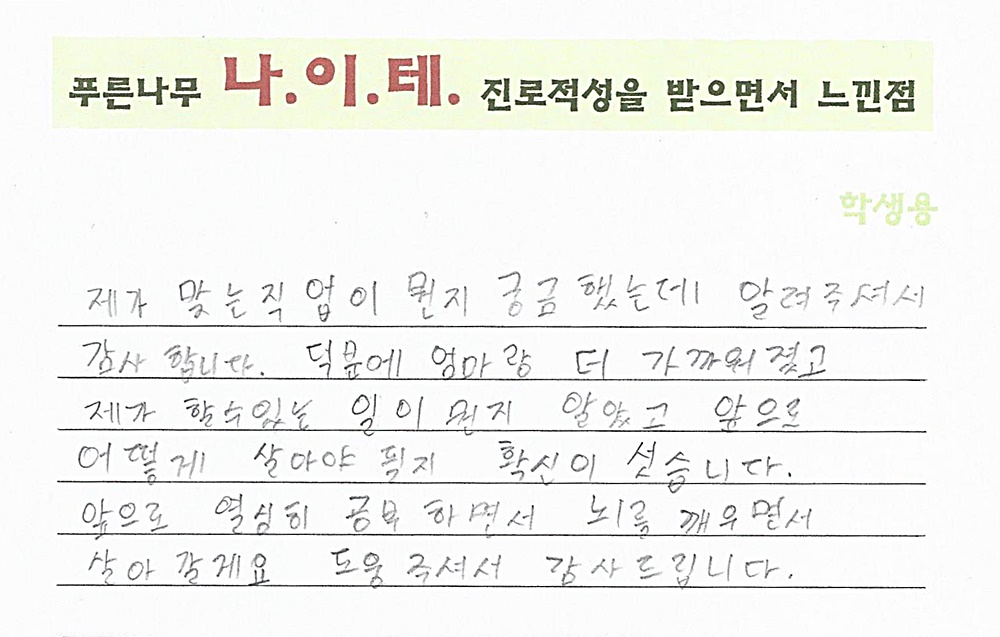 푸른나무 나.이.테. 진로적성을 받으면서 느낀점
학생용
제가 맞는직업이 뭔지 궁금했는데 알려주셔서
감사합니다. 덕분에 엄마랑 더 가까워졌고
제가 할수있는 일이 뭔지 알았고 앞으로
어떻게 살아야 될지 확신이 섯습니다.
앞으로 열심히 공부 하면서 뇌를 깨우면서
살아갈게요 도움주셔서 감사드립니다.